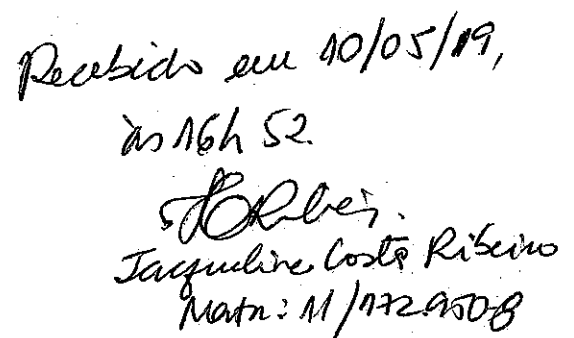 Recebido em 10/05/19,
às 16h 52.
Jacqueline Costa Ribeiro
Matr: 11/172.950-8